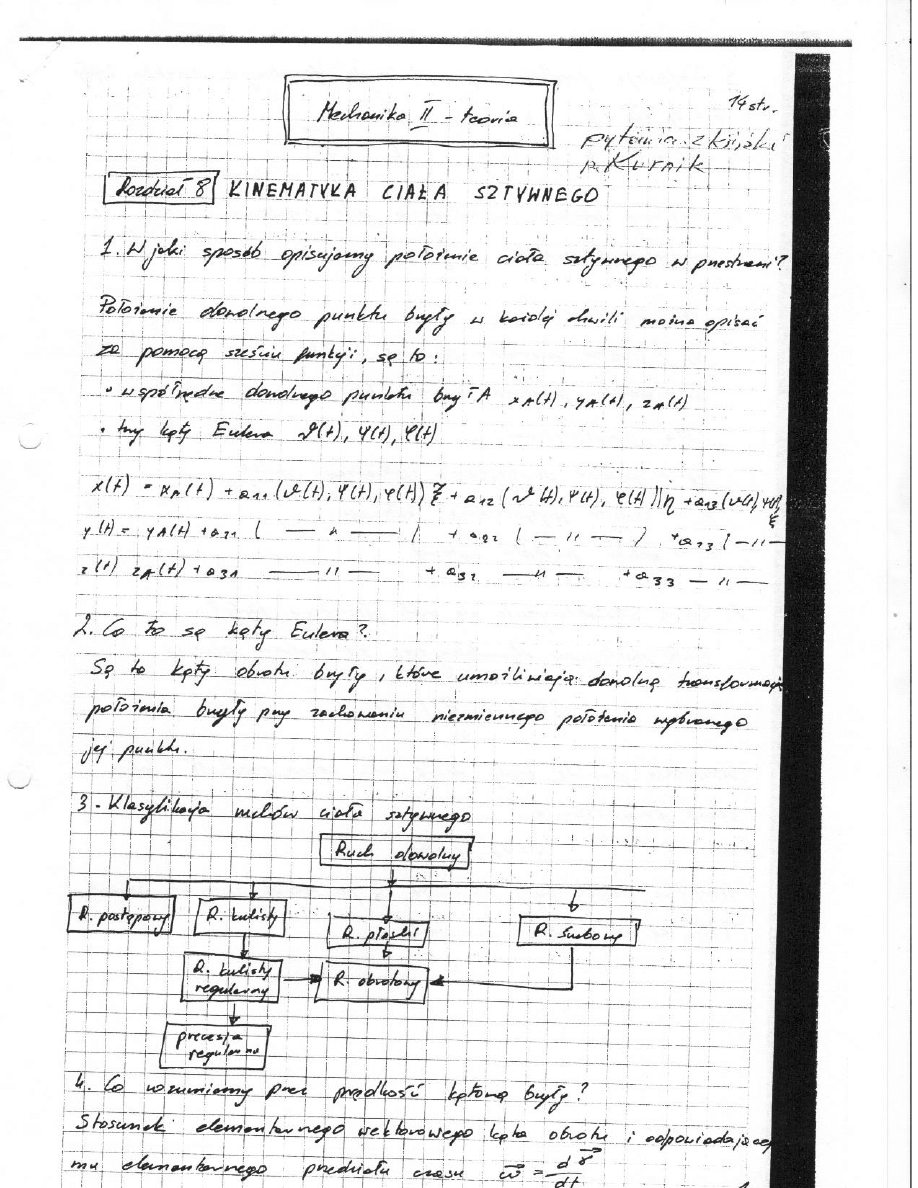 Mechanika II - teoria
14 str.
pytania z książki
p. Kurnik
Rozdział 8 KINEMATYKA CIAŁA SZTYWNEGO
1. W jaki sposób opisujemy położenie ciała sztywnego w przestrzeni?
Położenie dowolnego punktu bryły w każdej chwili można opisać
za pomocą sześciu funkcji, są to:
• współrzędne dowolnego punktu bryły A xA(t), yA(t), zA(t)
• trzy kąty Eulera ϑ(t), ψ(t), φ(t)
x(t) = xA(t) + a11 (ϑ(t), ψ(t), φ(t)) ξ + a12 (ϑ(t), ψ(t), φ(t)) η + a13 (ϑ(t), ψ(t),
y(t) = yA(t) + a21 ( — " — ) + a22 ( — " — ) + a23 ( — " —
z(t) zA(t) + a31 — " — + a32 — " — + a33 — " —
2. Co to są kąty Eulera?
Są to kąty obrotu bryły, które umożliwiają dowolną transformację
położenia bryły przy zachowaniu niezmiennego położenia wybranego
jej punktu.
3. Klasyfikacja ruchów ciała sztywnego
Ruch dowolny
R. postępowy R. kulisty R. płaski R. śrubowy
R. kulisty regularny R. obrotowy
precesja regularna
4. Co rozumiemy przez prędkość kątową bryły?
Stosunek elementarnego wektorowego kąta obrotu i odpowiadającego
mu elementarnego przedziału czasu ω = dγ/dt